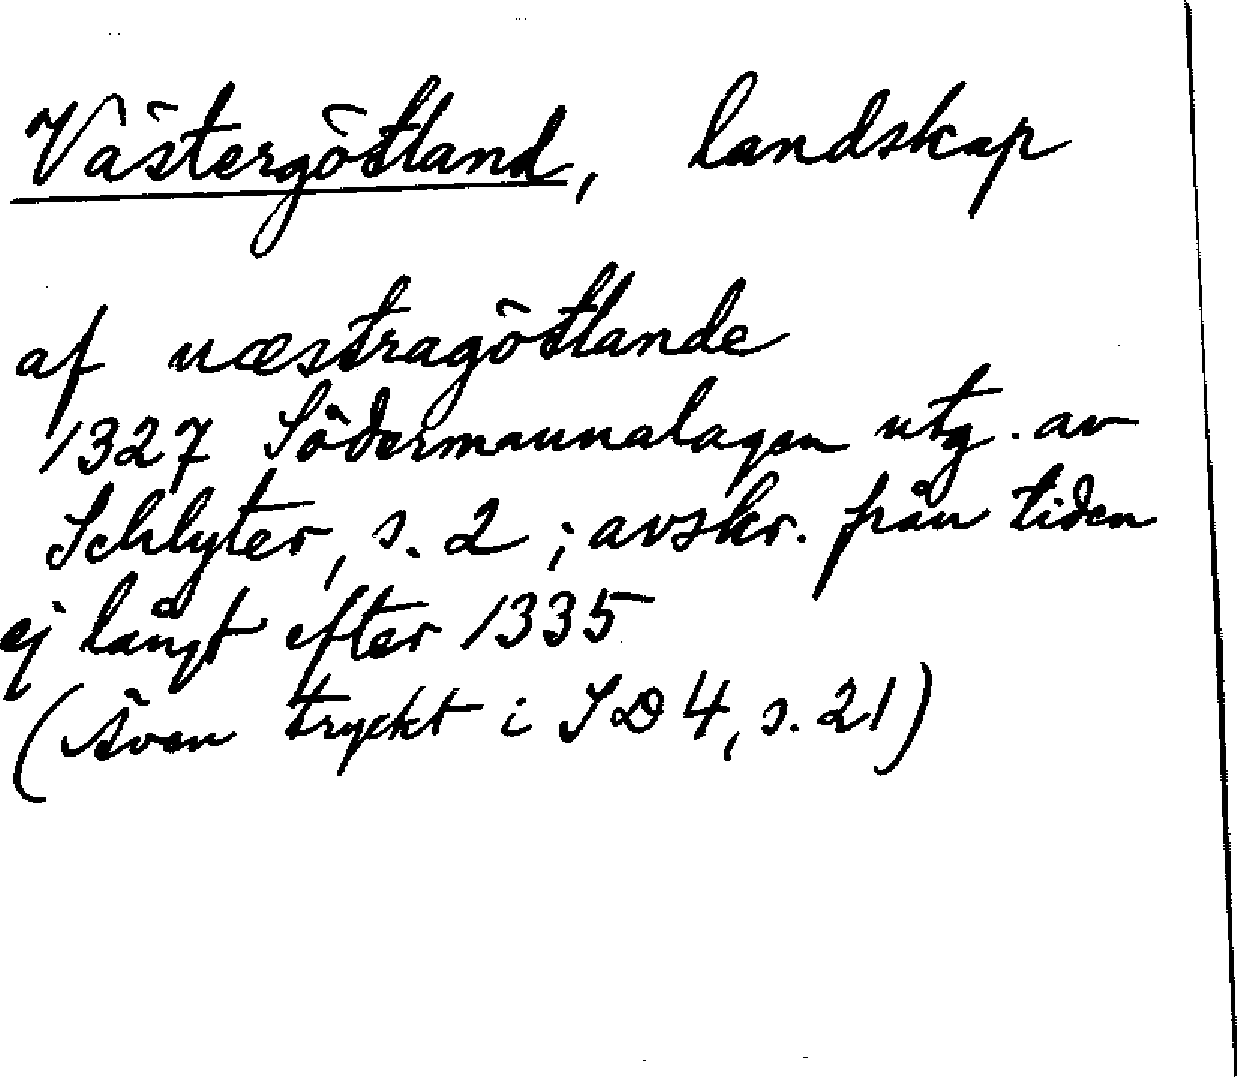 Västergötland, landskap
af uæstragötlande
1327 Södermannalagen utg. av
Schlyter, s. 2 ; avskr. från tiden
ej långt efter 1335
(även tryckt i SD 4, s. 21)